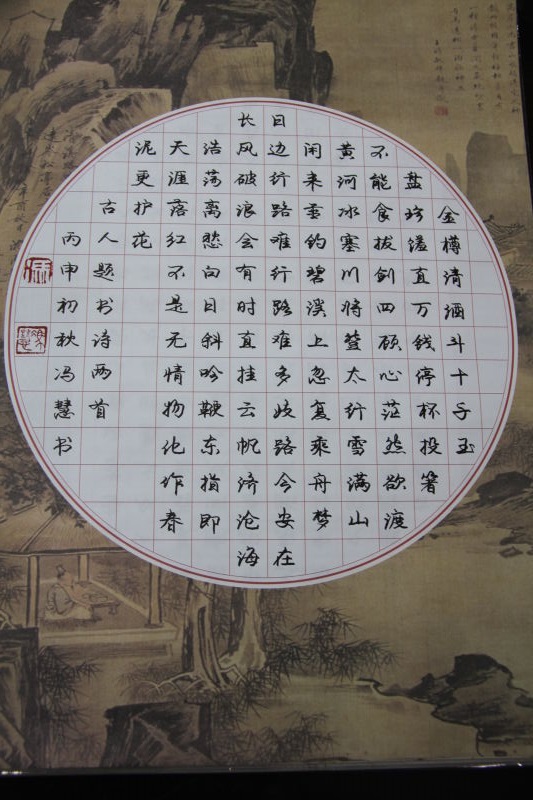 金樽清酒斗十千玉
盘珍馐直万钱停杯投箸
不能食拔剑四顾心茫然欲渡
黄河冰塞川将登太行雪满山
闲来垂钓碧溪上忽复乘舟梦
日边行路难行路难多歧路今安在
长风破浪会有时直挂云帆济沧海
浩荡离愁向日斜吟鞭东指即
天涯落红不是无情物化作春
泥更护花
古人题书诗两首
丙申初秋冯慧书